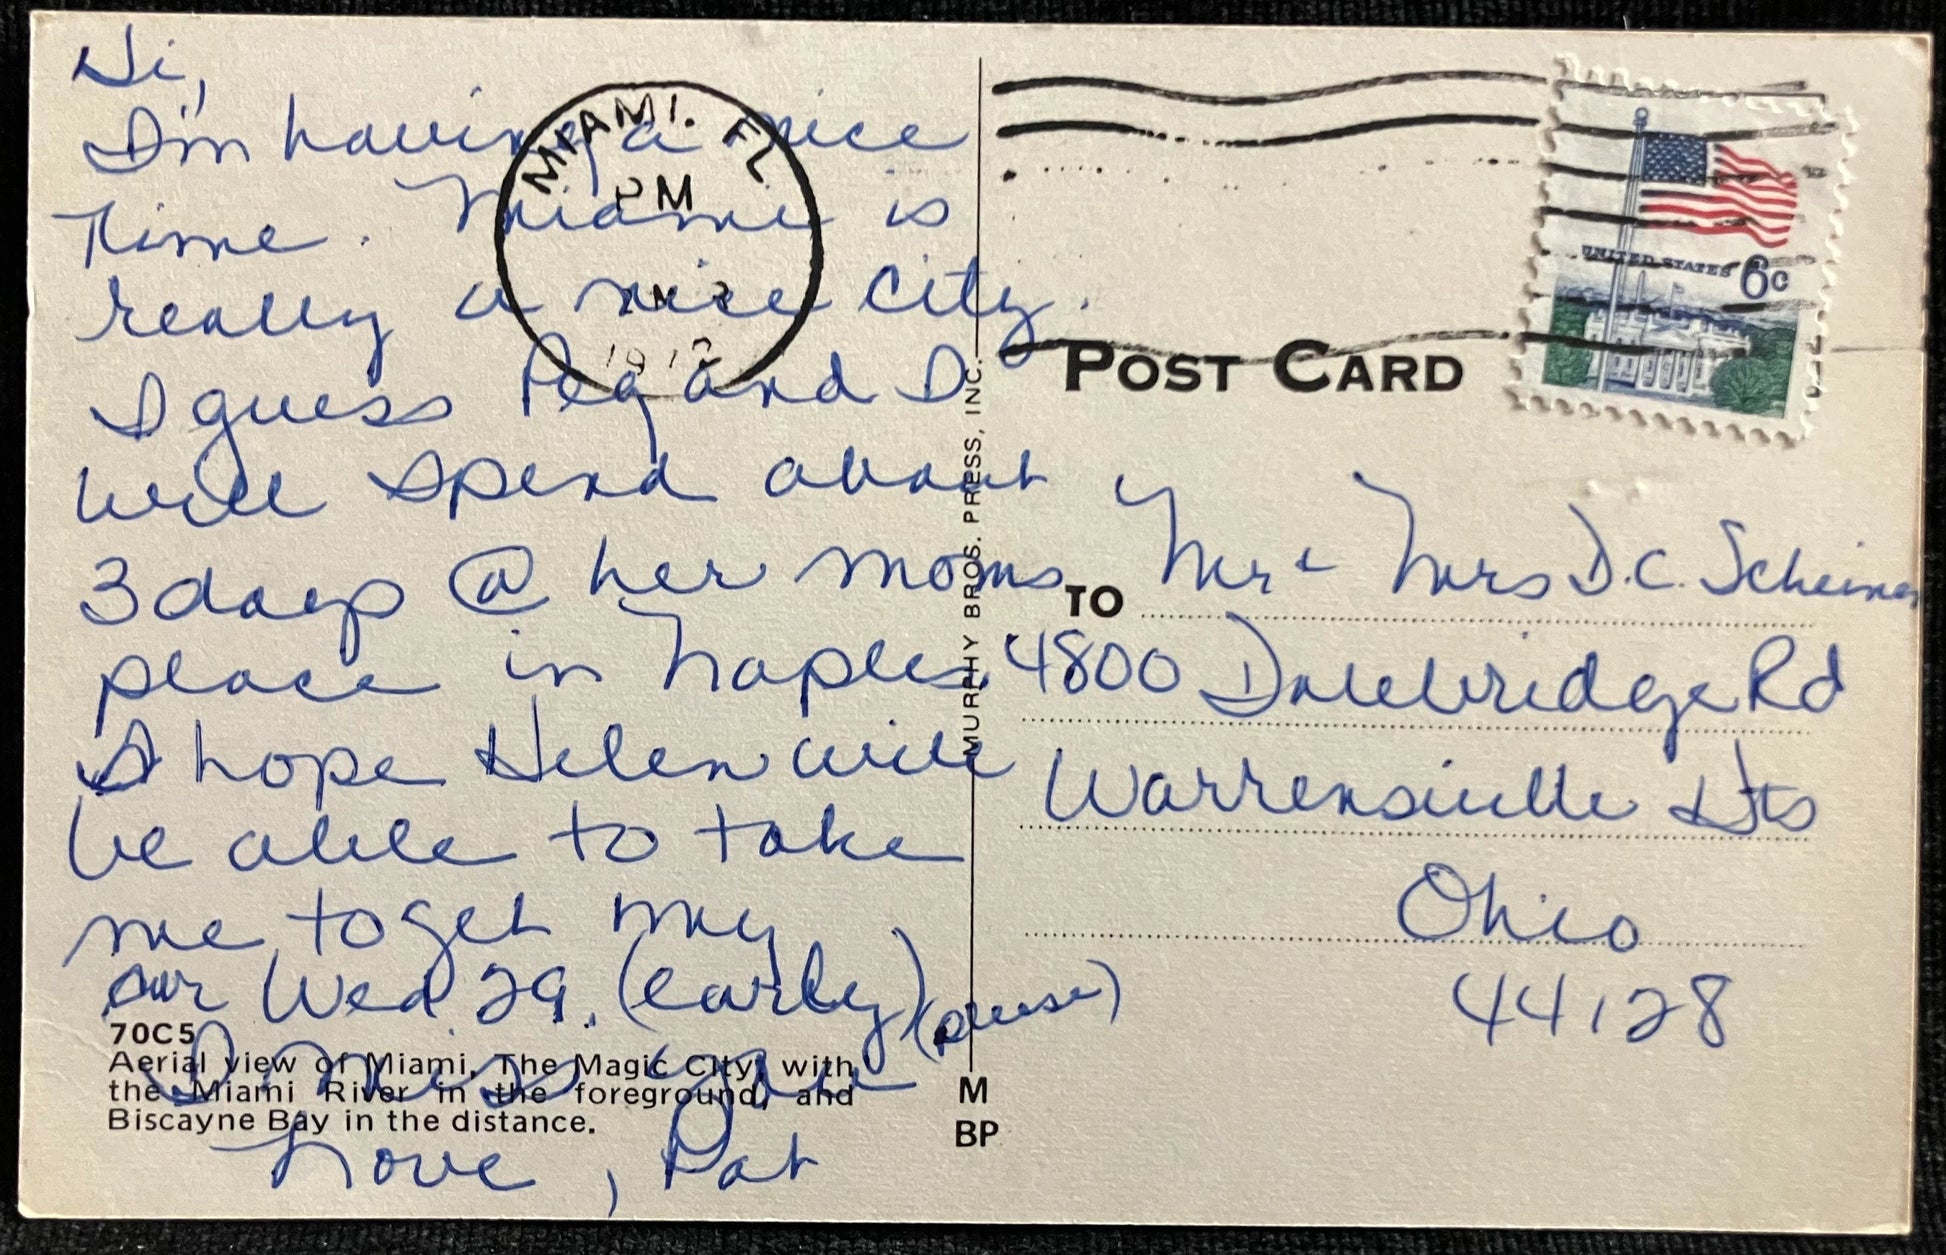 Hi,
I'm having a nice
time. Miami is
really a nice city.
I guess Peg and I
will spend about
3 days @ her moms
place in Naples.
I hope Helen will
be able to take
me to get my
car Wed 29. (early) (please)
I miss you
Love, Pat
70C5
Aerial view of Miami, The Magic City, with
the Miami River in the foreground, and
Biscayne Bay in the distance.
MIAMI. FL
PM
MURPHY BROS. PRESS, INC.
M
BP
UNITED STATES 6c
POST CARD
TO Mr & Mrs D.C.
4800 Dalebridge Rd
Warrensville Hts
Ohio
44128